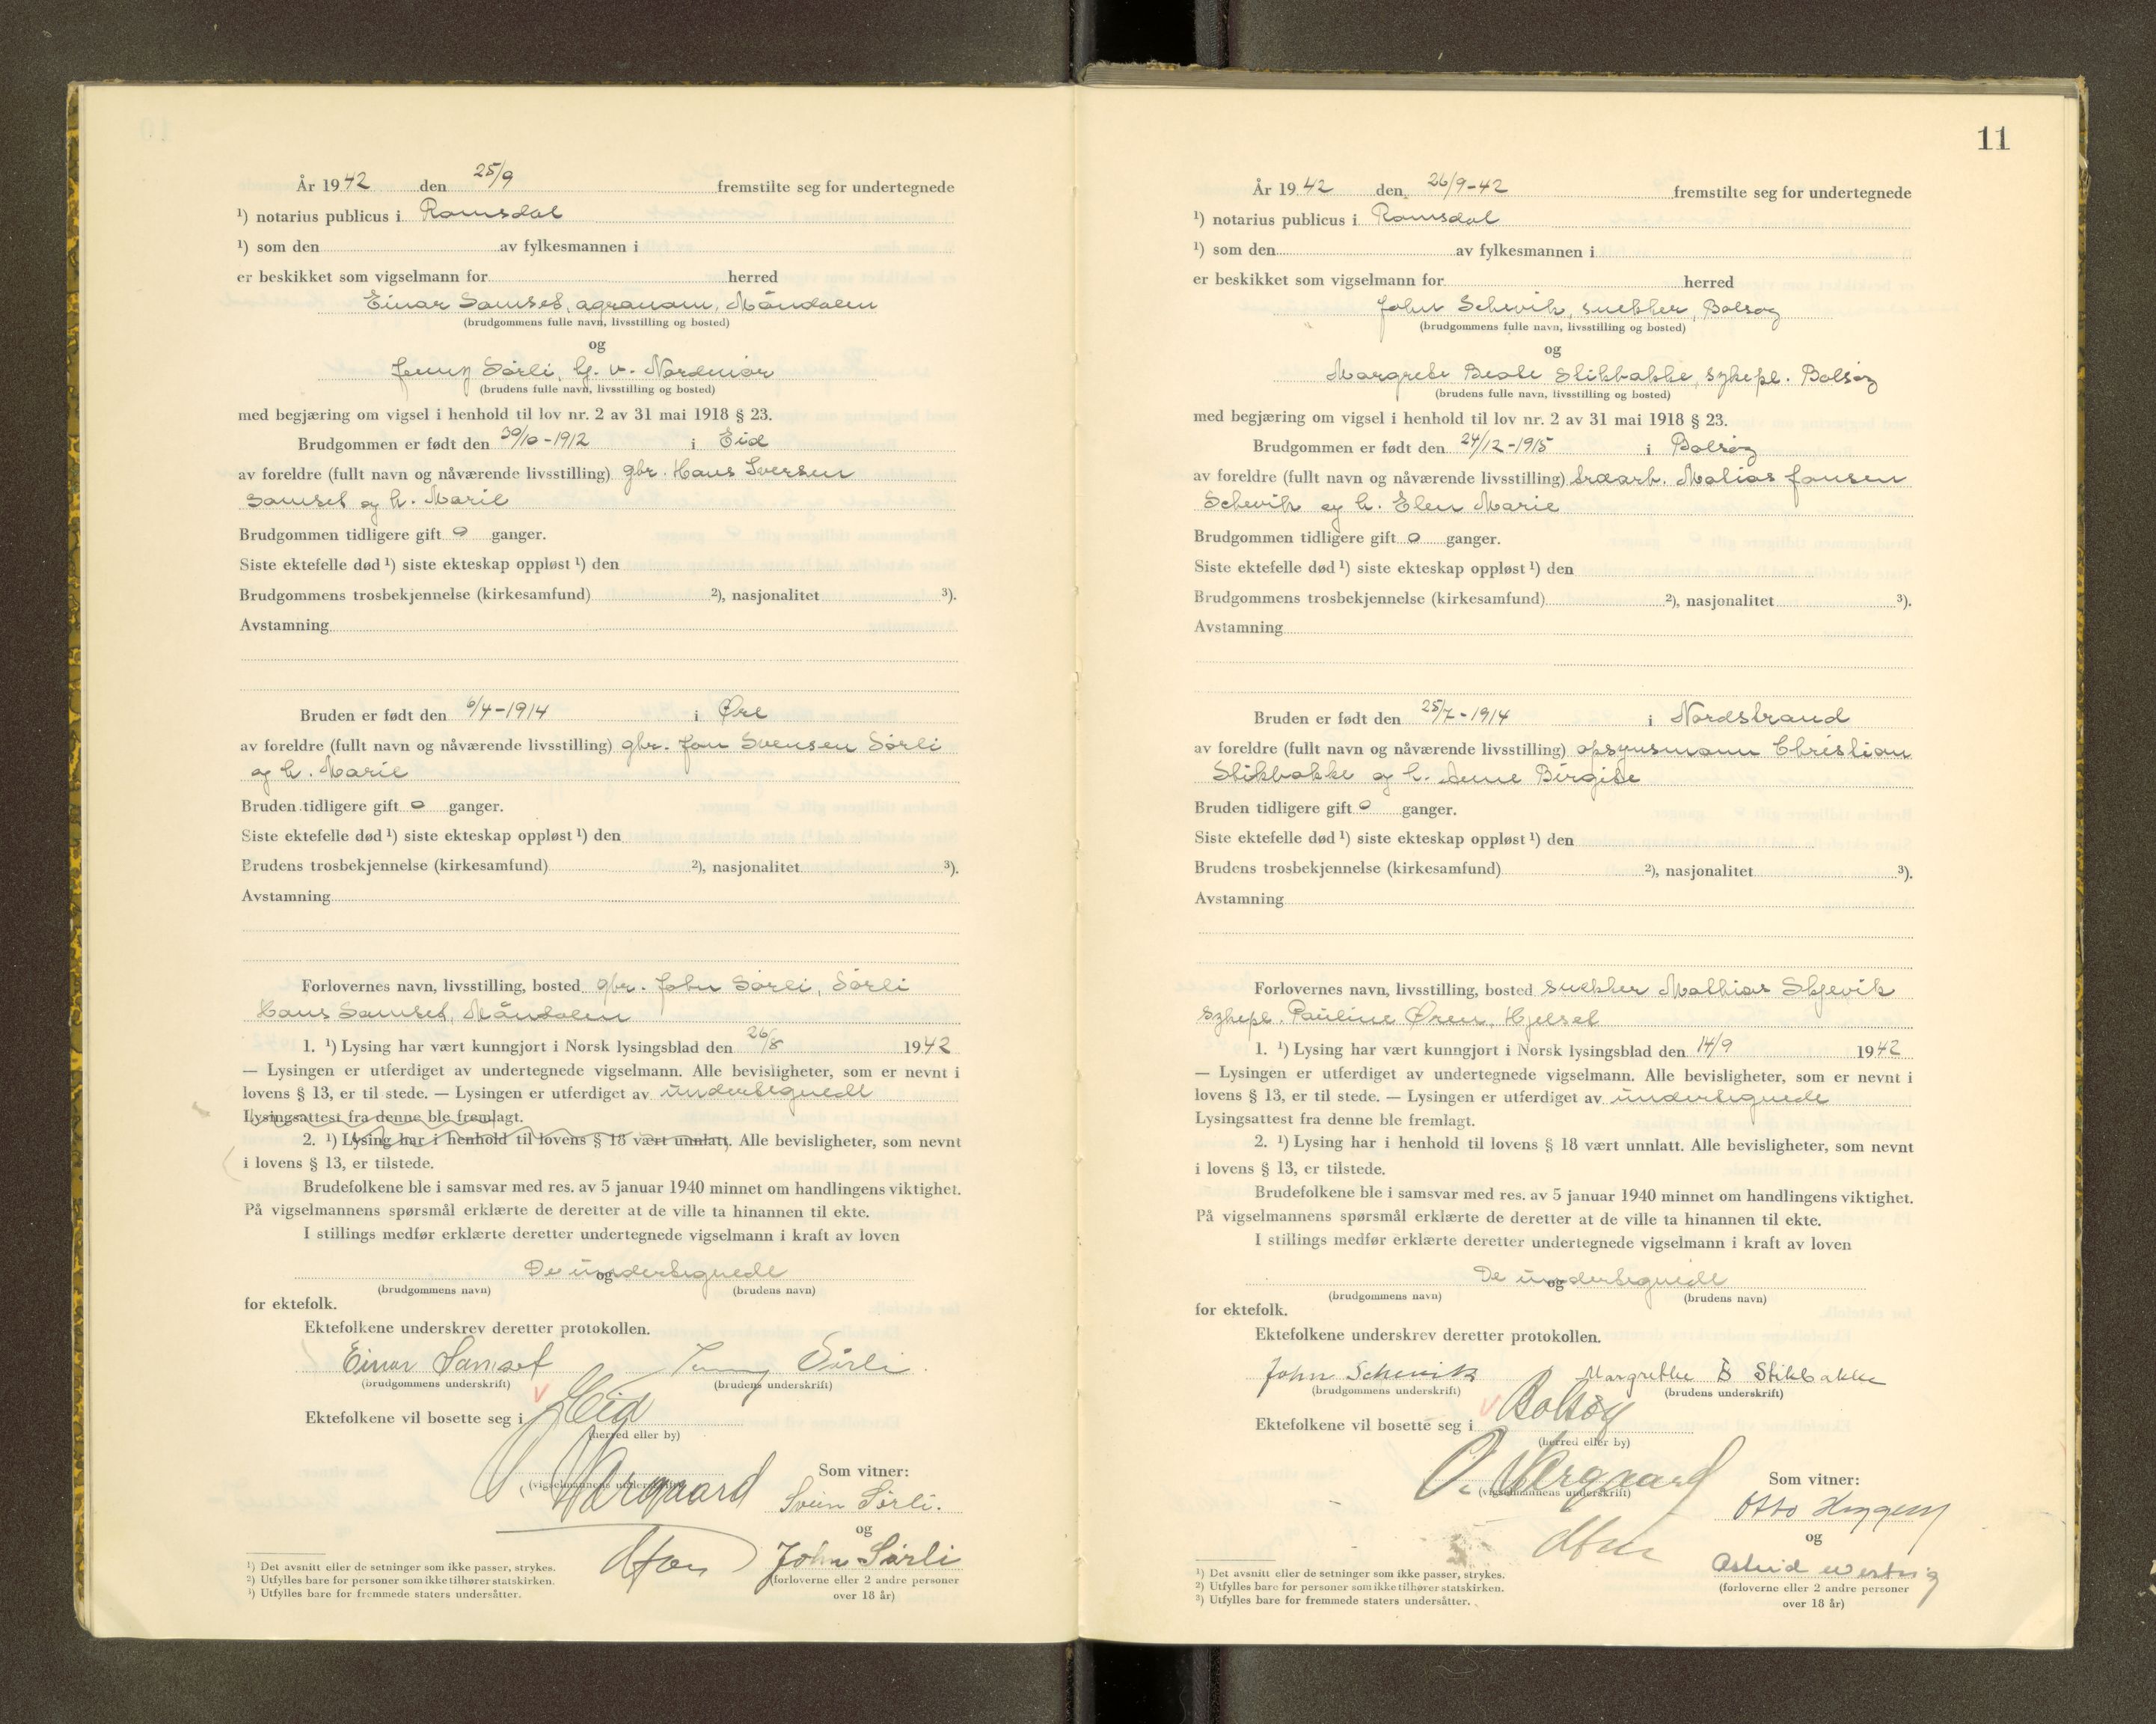 År 1942 den 25/9 fremstilte seg for undertegnede
¹) notarius publicus i Romsdal
¹) som den av fylkesmannen i
er beskikket som vigselmann for herred
Einar Samset, agronom, Måndalen
(brudgommens fulle navn, livsstilling og bosted)
og
Jenny Sørli, G. v. Nordmør
(brudens fulle navn, livsstilling og bosted)
med begjæring om vigsel i henhold til lov nr. 2 av 31 mai 1918 § 23.
Brudgommen er født den 30/10-1912 i Eid
av foreldre (fullt navn og nåværende livsstilling) gbr. Hans Iversen
Samset og h. Marie
Brudgommen tidligere gift 0 ganger.
Siste ektefelle død ¹) siste ekteskap oppløst ¹) den
Brudgommens trosbekjennelse (kirkesamfund) ²), nasjonalitet ³).
Avstamning
Bruden er født den 6/4-1914 i Øre
av foreldre (fullt navn og nåværende livsstilling) gbr. Jon Svensen Sørli
og h. Marie
Bruden tidligere gift 0 ganger.
Siste ektefelle død ¹) siste ekteskap oppløst ¹) den
Brudens trosbekjennelse (kirkesamfund) ²), nasjonalitet ³).
Avstamning
Forlovernes navn, livsstilling, bosted gbr. John Sørli, Sørli
Hans Samset, Måndalen
1. ¹) Lysing har vært kunngjort i Norsk lysingsblad den 26/8 1942
— Lysingen er utferdiget av undertegnede vigselmann. Alle bevisligheter, som er nevnt i
lovens § 13, er til stede. — Lysingen er utferdiget av undertegnede
Lysingsattest fra denne ble fremlagt.
2. ¹) Lysing har i henhold til lovens § 18 vært unnlatt. Alle bevisligheter, som nevnt
i lovens § 13, er tilstede.
Brudefolkene ble i samsvar med res. av 5 januar 1940 minnet om handlingens viktighet.
På vigselmannens spørsmål erklærte de deretter at de ville ta hinannen til ekte.
I stillings medfør erklærte deretter undertegnede vigselmann i kraft av loven
De undertegnede
og
(brudgommens navn) (brudens navn)
for ektefolk.
Ektefolkene underskrev deretter protokollen.
Einar Samset Jenny Sørli.
(brudgommens underskrift) (brudens underskrift)
Ektefolkene vil bosette seg i Eid
(herred eller by)
Som vitner:
O. Wærgaard
(vigselmannens underskrift)
Svein Sørli.
og
John Sørli
(forloverne eller 2 andre personer
over 18 år)
¹) Det avsnitt eller de setninger som ikke passer, strykes.
²) Utfylles bare for personer som ikke tilhører statskirken.
³) Utfylles bare for fremmede staters undersåtter.
11
År 1942 den 26/9-42 fremstilte seg for undertegnede
¹) notarius publicus i Romsdal
¹) som den av fylkesmannen i
er beskikket som vigselmann for herred
John Schevik, snekker, Bolsøy
(brudgommens fulle navn, livsstilling og bosted)
og
Margrete Beate Stikbakke, sykepl. Bolsøy
(brudens fulle navn, livsstilling og bosted)
med begjæring om vigsel i henhold til lov nr. 2 av 31 mai 1918 § 23.
Brudgommen er født den 24/12-1915 i Bolsøy
av foreldre (fullt navn og nåværende livsstilling) trearb. Matias Jonsen
Schevik og h. Elen Marie
Brudgommen tidligere gift 0 ganger.
Siste ektefelle død ¹) siste ekteskap oppløst ¹) den
Brudgommens trosbekjennelse (kirkesamfund) ²), nasjonalitet ³).
Avstamning
Bruden er født den 25/7-1914 i Nordstrand
av foreldre (fullt navn og nåværende livsstilling) opsynsmann Christian
Stikbakke og h. Anne Birgite
Bruden tidligere gift 0 ganger.
Siste ektefelle død ¹) siste ekteskap oppløst ¹) den
Brudens trosbekjennelse (kirkesamfund) ²), nasjonalitet ³).
Avstamning
Forlovernes navn, livsstilling, bosted snekker Mathias Skjevik
sykepl. Pauline Øren, Hjelset
1. ¹) Lysing har vært kunngjort i Norsk lysingsblad den 14/9 1942
— Lysingen er utferdiget av undertegnede vigselmann. Alle bevisligheter, som er nevnt i
lovens § 13, er til stede. — Lysingen er utferdiget av undertegnede
Lysingsattest fra denne ble fremlagt.
2. ¹) Lysing har i henhold til lovens § 18 vært unnlatt. Alle bevisligheter, som nevnt
i lovens § 13, er tilstede.
Brudefolkene ble i samsvar med res. av 5 januar 1940 minnet om handlingens viktighet.
På vigselmannens spørsmål erklærte de deretter at de ville ta hinannen til ekte.
I stillings medfør erklærte deretter undertegnede vigselmann i kraft av loven
De undertegnede
og
(brudgommens navn) (brudens navn)
for ektefolk.
Ektefolkene underskrev deretter protokollen.
John Schevik Margrethe B Stikbakke
(brudgommens underskrift) (brudens underskrift)
Ektefolkene vil bosette seg i Bolsøy
(herred eller by)
Som vitner:
O. Wærgaard
(vigselmannens underskrift)
Otto
og
Astrid
(forloverne eller 2 andre personer
over 18 år)
¹) Det avsnitt eller de setninger som ikke passer, strykes.
²) Utfylles bare for personer som ikke tilhører statskirken.
³) Utfylles bare for fremmede staters undersåtter.